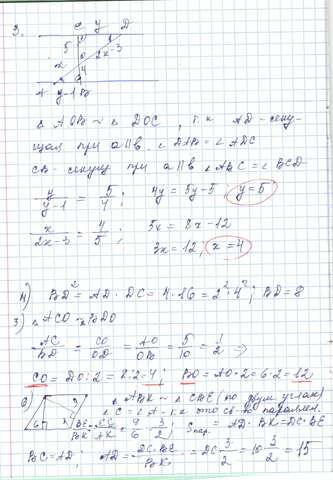 3.
C y D
5
2x-3
x
4
A y-1 B
△ AOB ~ △ DOC , т.к AD - секу-
щая при a||b. ∠ DAB = ∠ ADC
CB - секущ при a||b ∠ ABC = ∠ BCD
y/(y-1) = 5/4 ; 4y = 5y-5 , y=5
x/(2x-3) = 4/5 ; 5x = 8x-12
3x = 12, x=4
4) BD² = AD · DC = 4·16 = 2²·4² ; BD=8
5) △ ACO ~ △ BDO
AC/BD = CO/OD = AO/OB = 5/10 = 1/2 =>
CO = DO:2 = 8:2 = 4 ; BO = AO·2 = 6·2 = 12
6) △ ABK ~ △ CBE (по двум углам)
∠ C = ∠ A - т.к это св-во параллел.
6 BE/BK = BC/AK = 9/6 = 3/2 ; S пар = AD · BK = DC · BE
BC = AD ; AD = DC·BE/BK = DC 3/2 = 10·3/2 = 15